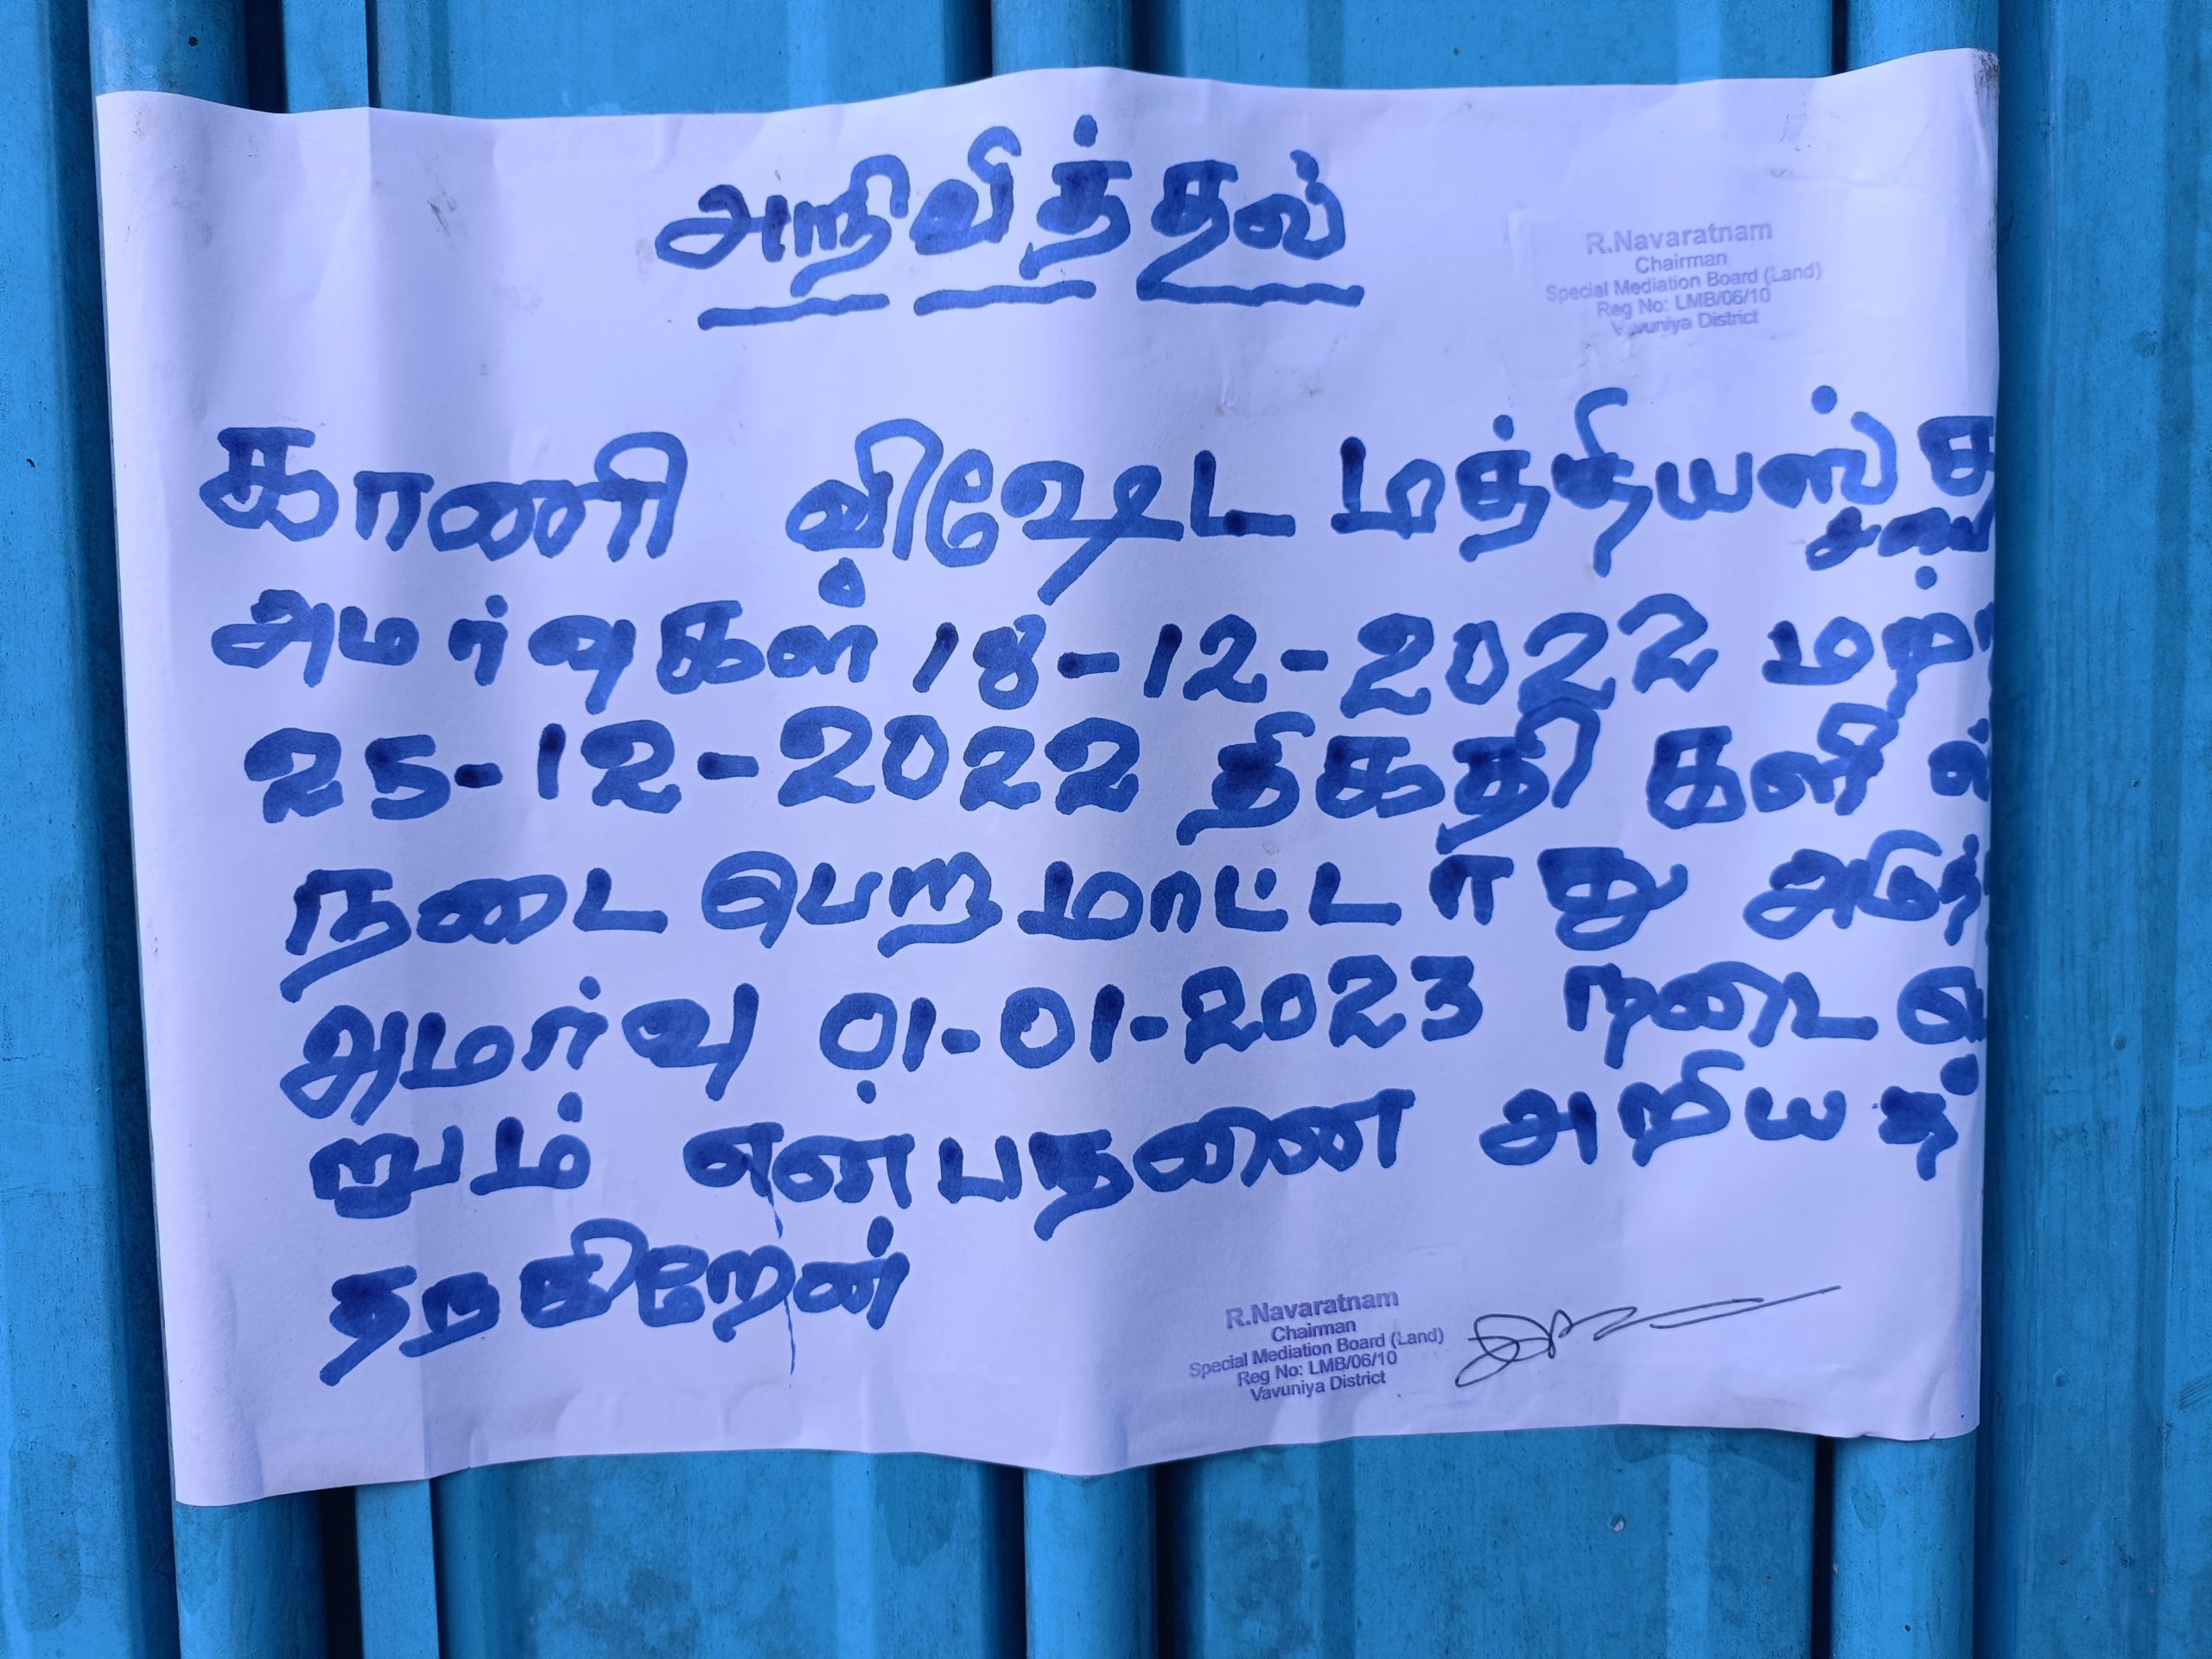 அறிவித்தல்
R.Navaratnam
Chairman
Special Mediation Board (Land)
Reg No: LMB/06/10
Vavuniya District
காணி விஷேட மத்தியஸ்த
சபை
அமர்வுகள் 18-12-2022
25-12-2022 திகதி களில்
நடை பெற மாட்டாது
அமர்வு 01-01-2023 நடை பெ
றும் என்பதனை அறியத்
தருகிறேன்
R.Navaratnam
Chairman
Special Mediation Board (Land)
Reg No: LMB/06/10
Vavuniya District